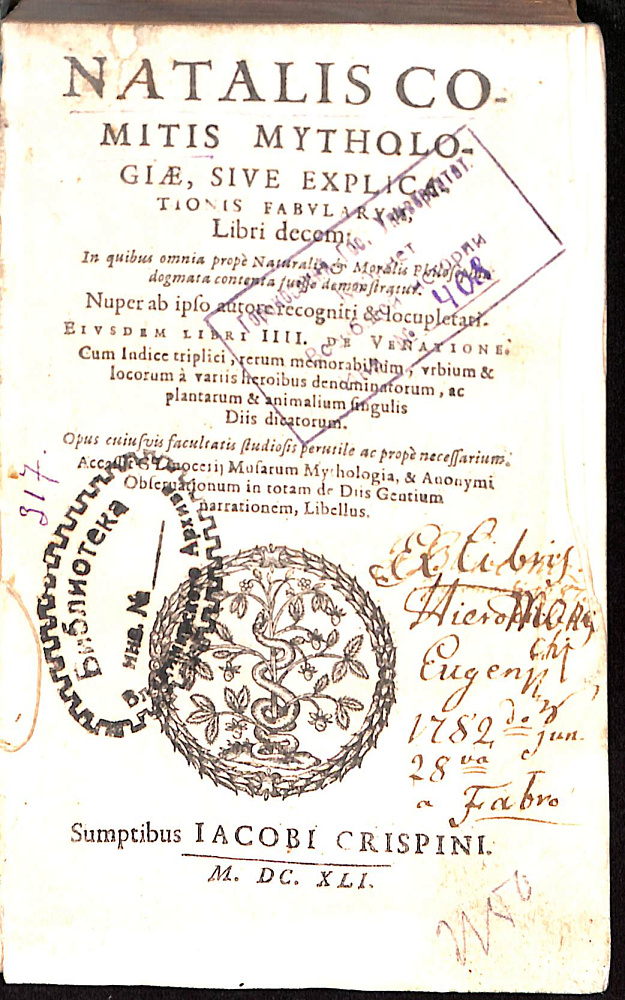 NATALIS CO-
MITIS MYTHOLO-
GIÆ, SIVE EXPLICA-
TIONIS FABVLARVM,
Libri decem;
In quibus omnia propè Naturalis & Moralis Philosophiæ
dogmata contenta fuisse demonstratur.
Nuper ab ipso autore recogniti & locupletati.
EIVSDEM LIBRI IIII. DE VENATIONE.
Cum Indice triplici, rerum memorabilium, vrbium &
locorum à variis heroibus denominatorum, ac
plantarum & animalium singulis
Diis dicatorum.
Opus cuiusvis facultatis studiosis perutile ac propè necessarium.
Accessit G. Linocerij Musarum Mythologia, & Anonymi
Obseruationum in totam de Diis Gentium
narrationem, Libellus.
Гос. Университет.
Всеобщей истории
408
317.
Библиотека
инв. №
Ex libris
Eugenii
1782 de jun.
28 va
a Fabro
Sumptibus IACOBI CRISPINI.
M. DC. XLI.